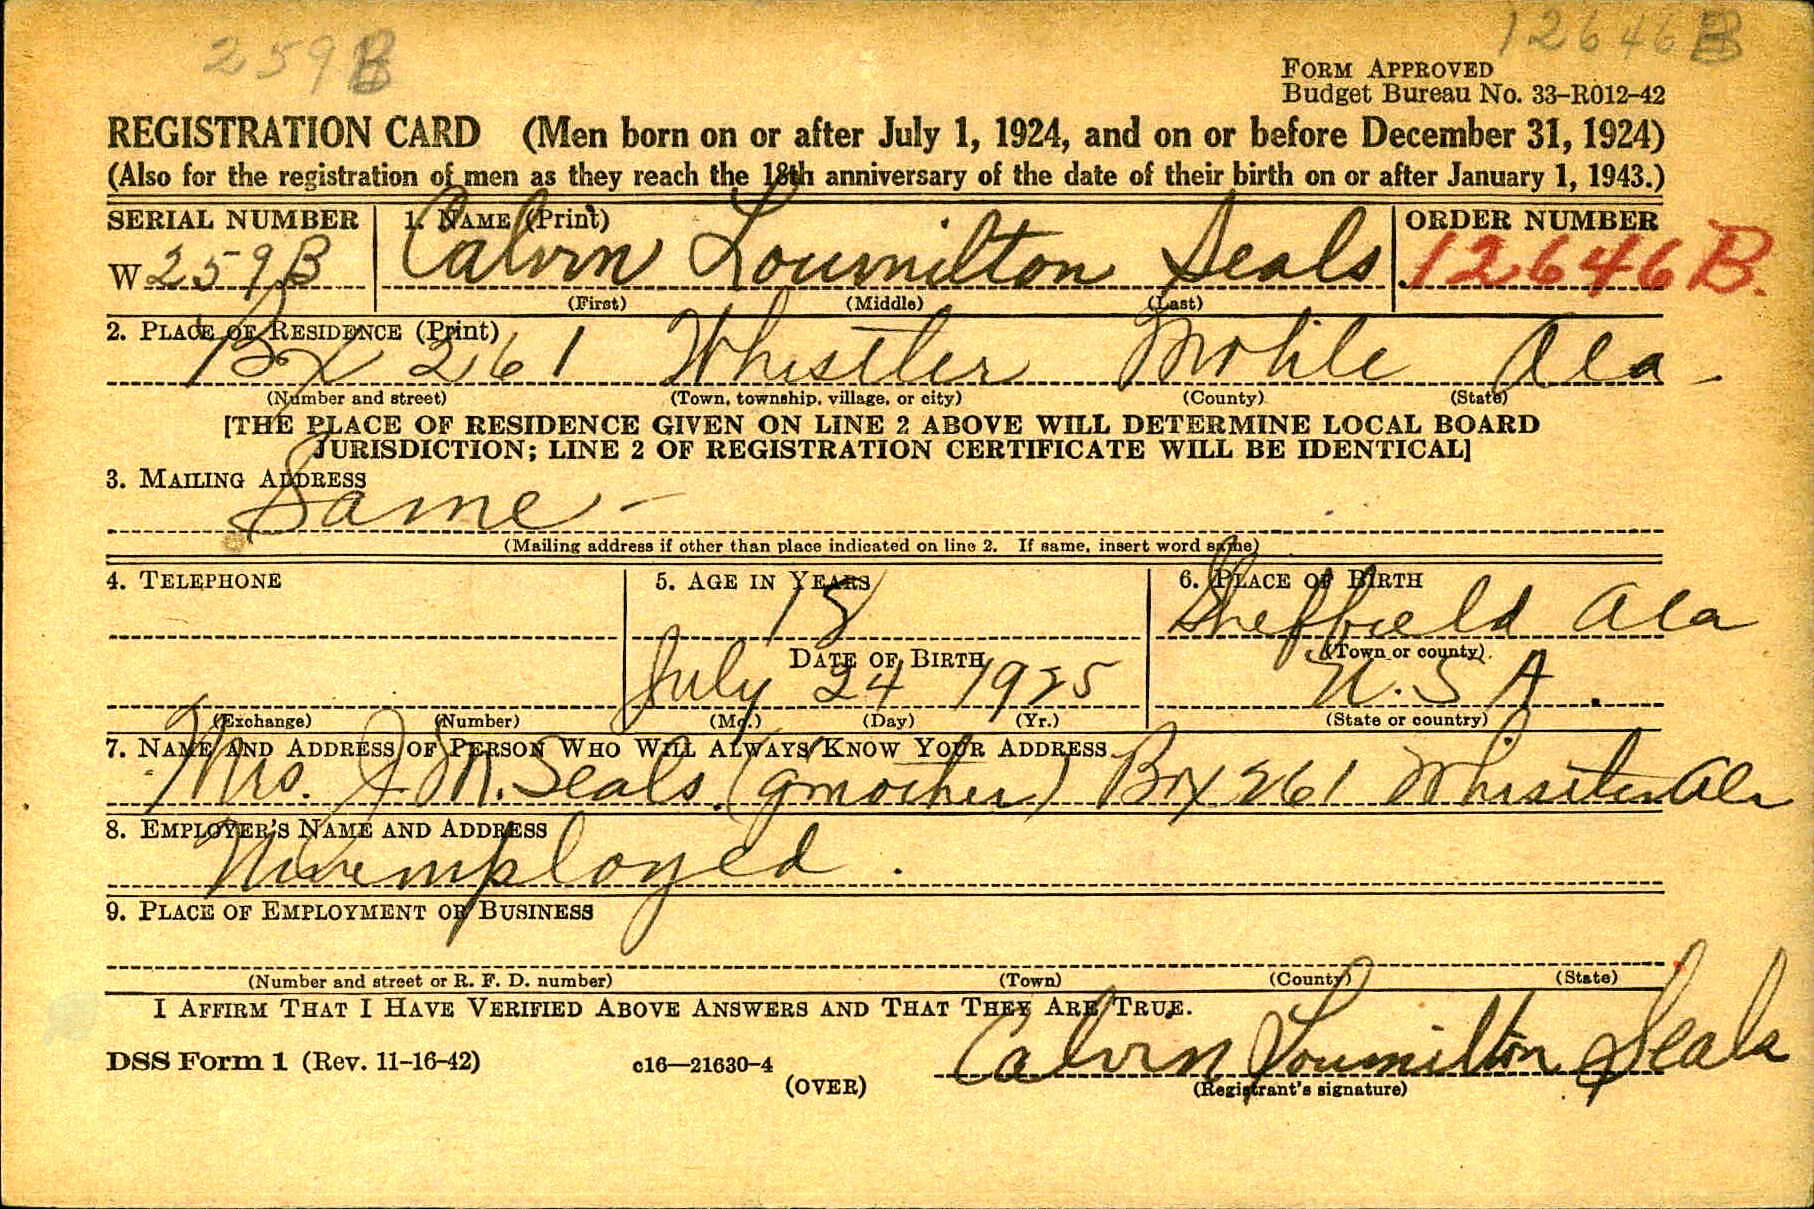 259B 12646B
FORM APPROVED
Budget Bureau No. 33-R012-42
REGISTRATION CARD (Men born on or after July 1, 1924, and on or before December 31, 1924)
(Also for the registration of men as they reach the 18th anniversary of the date of their birth on or after January 1, 1943.)
SERIAL NUMBER 1. NAME (Print) ORDER NUMBER
W 259B Calvin Loumilton Seals 12646B.
(First) (Middle) (Last)
2. PLACE OF RESIDENCE (Print)
Bx 261 Whistler Mobile Ala
(Number and street) (Town, township, village, or city) (County) (State)
[THE PLACE OF RESIDENCE GIVEN ON LINE 2 ABOVE WILL DETERMINE LOCAL BOARD
JURISDICTION; LINE 2 OF REGISTRATION CERTIFICATE WILL BE IDENTICAL]
3. MAILING ADDRESS
Same -
(Mailing address if other than place indicated on line 2. If same, insert word same)
4. TELEPHONE 5. AGE IN YEARS 6. PLACE OF BIRTH
18 Sheffield Ala
DATE OF BIRTH (Town or county)
July 24 1925 U.S A.
(Exchange) (Number) (Mo.) (Day) (Yr.) (State or country)
7. NAME AND ADDRESS OF PERSON WHO WILL ALWAYS KNOW YOUR ADDRESS
Mrs. J. M. Seals (g'mother) Bx 261 Whistler Ala
8. EMPLOYER'S NAME AND ADDRESS
Unemployed.
9. PLACE OF EMPLOYMENT OR BUSINESS
(Number and street or R. F. D. number) (Town) (County) (State)
I AFFIRM THAT I HAVE VERIFIED ABOVE ANSWERS AND THAT THEY ARE TRUE.
DSS Form 1 (Rev. 11-16-42) c16—21630-4 Calvin Loumilton Seals
(OVER) (Registrant's signature)